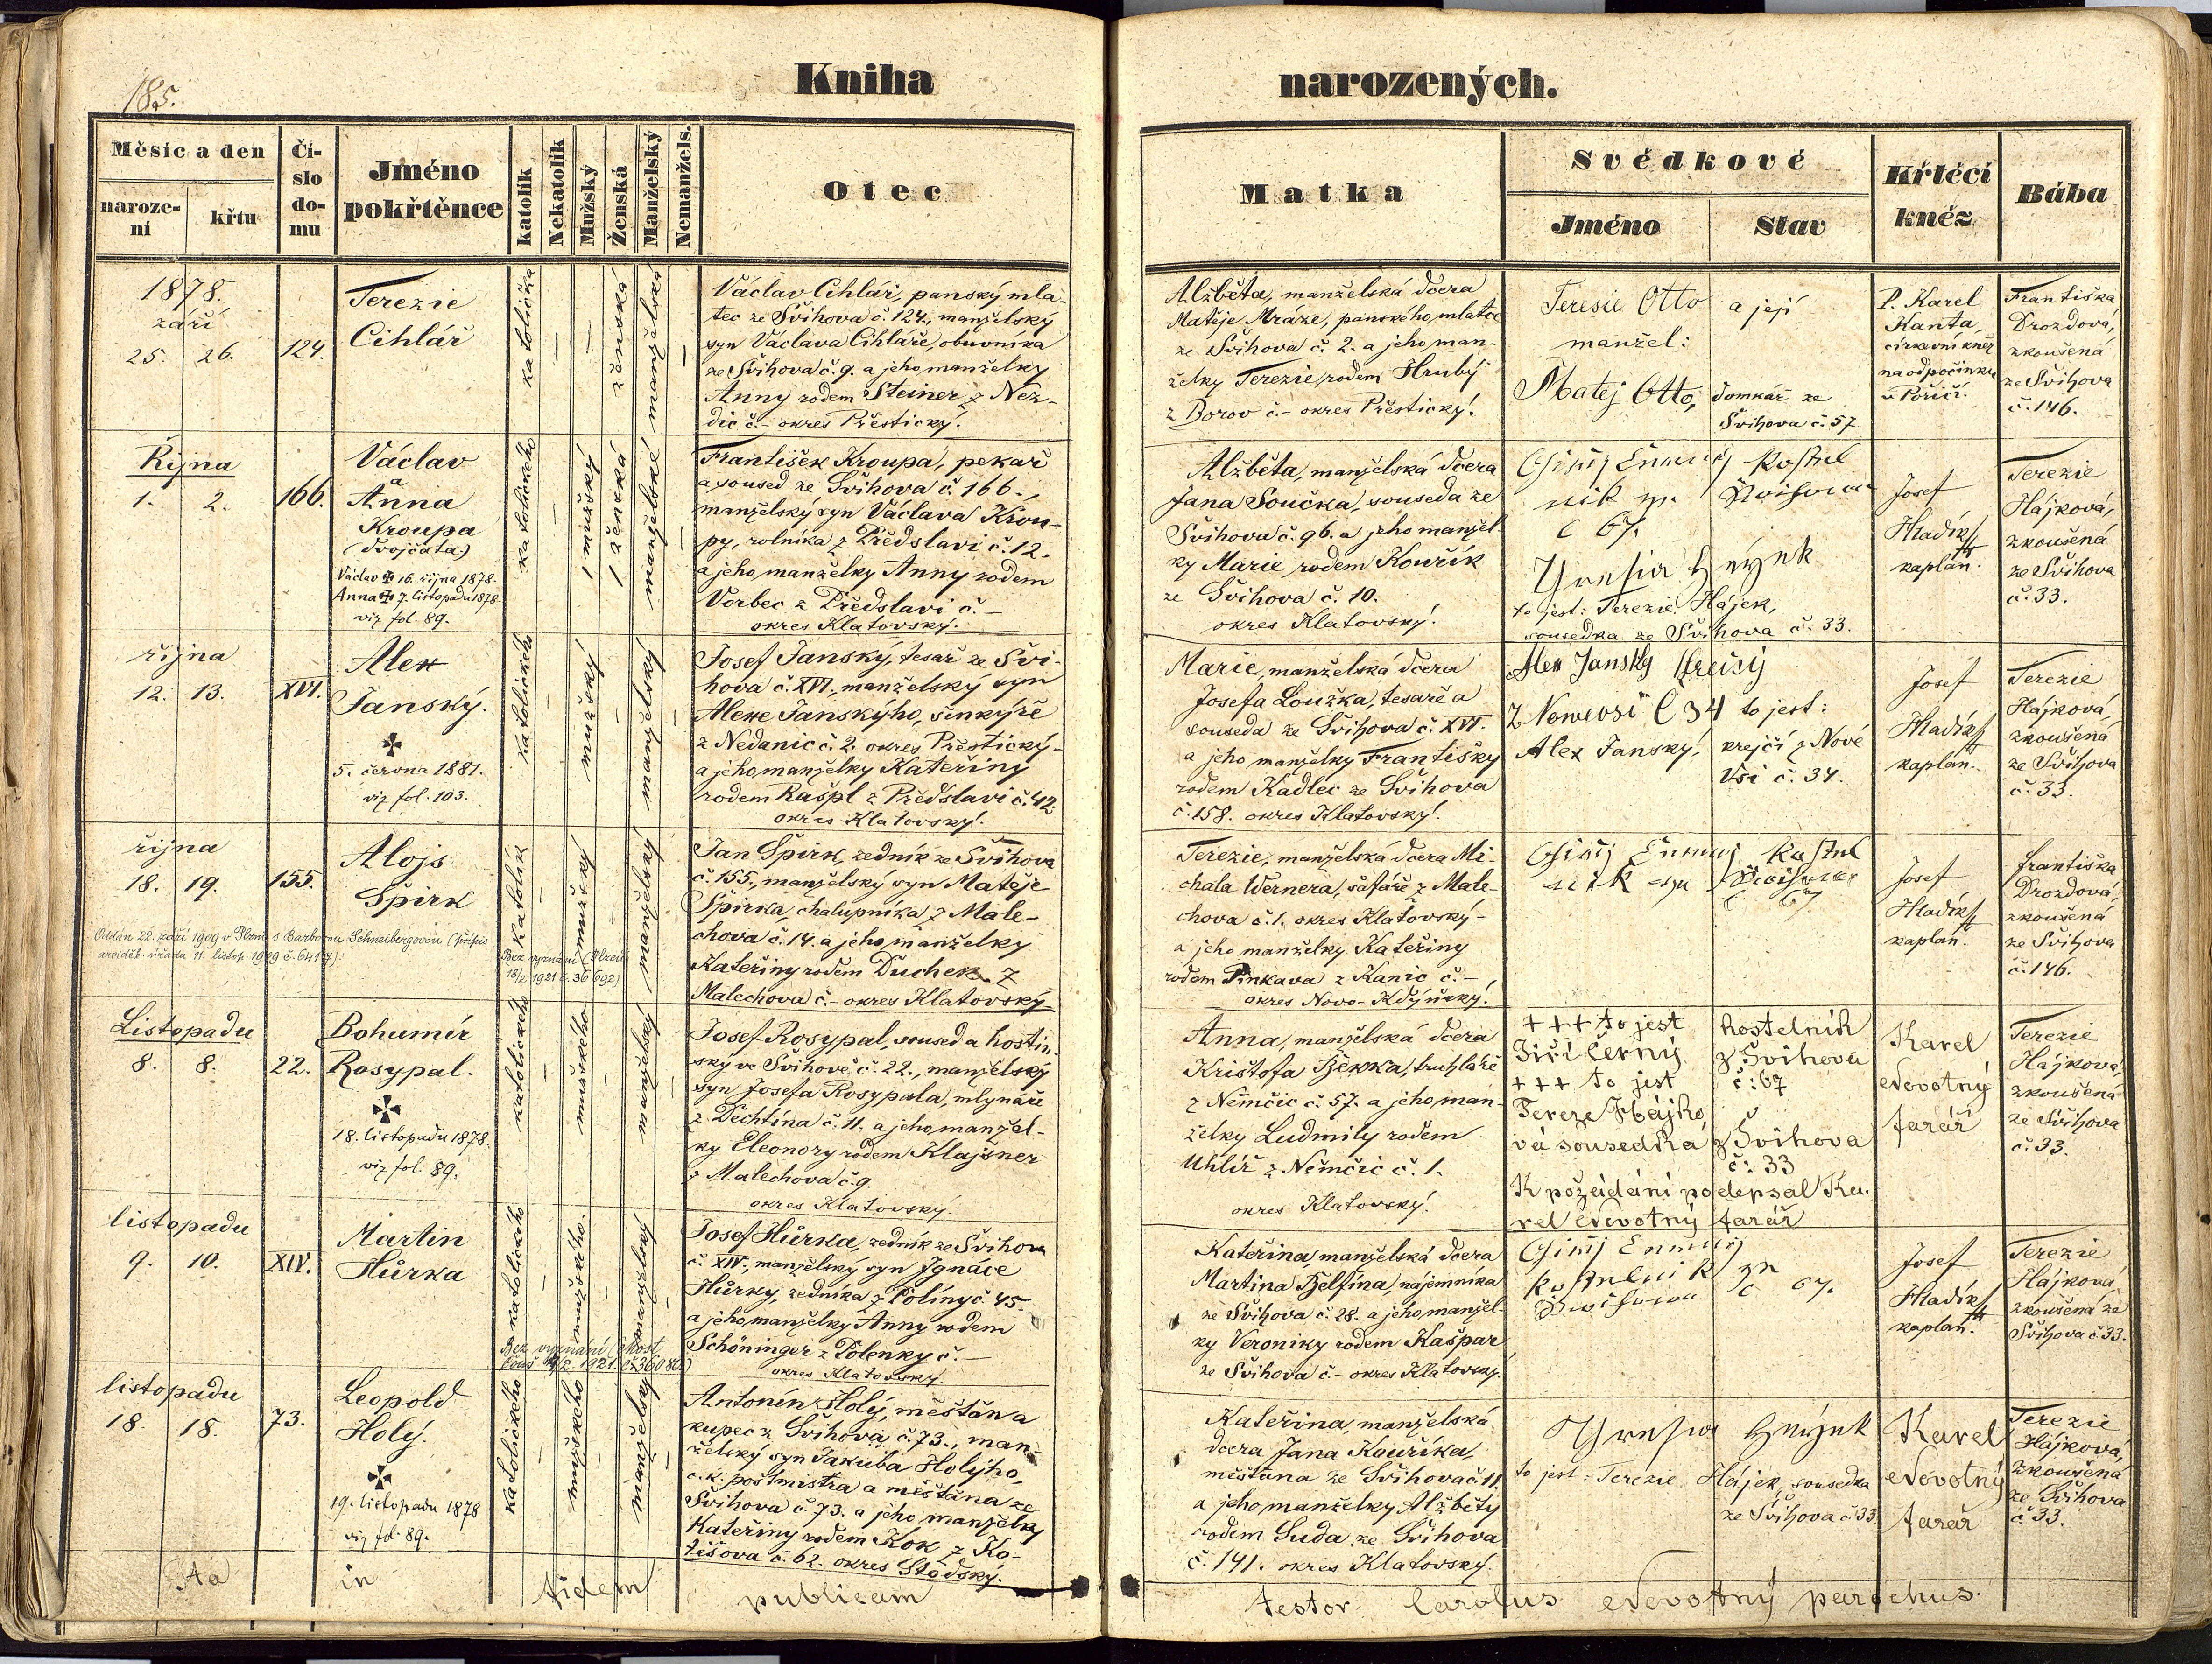 185.
Kniha narozených.
Měsíc a den
naroze-
ní
křtu
Čí-
slo
do-
mu
Jméno
pokřtěnce
katolík
Nekatolík
Mužský
Ženská
Manželský
Nemanžels.
Otec
Matka
Svědkové
Jméno
Stav
Křtěcí
kněz
Bába
1878.
září
25. 26.
124.
Terezie
Cihlář
katolička
ženská
manželská
Václav Cihlář, panský mla-
tec ze Švihova č. 124., manželský
syn Václava Cihláře, obuvníka
ze Švihova č. 9. a jeho manželky
Anny rodem Steiner z Nez-
dic č. – okres Přestický.
Alžběta, manželská dcera
Matěje Mráze, panského mlatce
ze Švihova č. 2. a jeho man-
želky Terezie, rodem Hrubý
z Borov č. – okres Přestický.
Teresie Otto a její
manžel:
Matej Otto, domkář ze
Švihova č. 57
P. Karel
Kanta,
církevní kněz
na odpočinku
v Poříčí.
Františka
Drozdová,
zkoušená
ze Švihova
č. 146.
Října
1. 2.
166.
Václav
a
Anna
Kroupa
(dvojčata)
Václav 16. října 1878.
Anna 7. listopadu 1878.
viz fol. 89.
katolického
1 mužský
1 ženská
manželské
František Kroupa, pekař
a soused ze Švihova č. 166.,
manželský syn Václava Krou-
py, rolníka z Předslavi č. 12.
a jeho manželky Anny rodem
Vorbec z Předslavi č. –
okres Klatovský.
Alžběta, manželská dcera
Jana Součka, souseda ze
Švihova č. 96. a jeho manžel-
ky Marie rodem Kouřík
ze Švihova č. 10.
okres Klatovský.
č 67.
to jest: Terezie Hájek,
sousedka ze Švihova č. 33.
Josef
Hladík
kaplan.
Terezie
Hájková,
zkoušená
ze Švihova
č. 33.
října
12. 13.
XVI.
Alex
Janský.
5. června 1881.
viz fol. 103.
katolického
mužský
manželský
Josef Janský, tesař ze Švi-
hova č. XVI., manželský syn
Alexe Janskýho, šenkýře
z Nedanic č. 2. okres Přestický-
a jeho manželky Kateřiny
rodem Rašpl z Předslavi č. 42.
okres Klatovský.
Marie, manželská dcera
Josefa Loužka, tesaře a
souseda ze Švihova č. XVI.
a jeho manželky Františky
rodem Kadlec ze Švihova
č. 158. okres Klatovský.
Alex Janský
č 34 to jest:
Alex Janský, krejčí z Nové
Vsi č. 34.
Josef
Hladík
kaplan.
Terezie
Hájková,
zkoušená
ze Švihova
č. 33.
října
18. 19.
155.
Alojs
Špirk
Oddán 22. září 1909 v Plzni s Barborou Schneibergovou (přípis
arciděk. úřadu 11. listop. 1909 č. 6417).
katolík
mužský
manželský
Bez vyznání (Plzeň
18/2 1921 č. 36692)
Jan Špirk, zedník ze Švihova
č. 155., manželský syn Matěje
Špirka, chalupníka z Male-
chova č. 14. a jeho manželky
Kateřiny rodem Duchek z
Malechova č. – okres Klatovský
Terezie, manželská dcera Mi-
chala Wernera, šafáře z Male-
chova č. 1. okres Klatovský-
a jeho manželky Kateřiny
rodem Pinkava z Kanic č. –
okres Novo-Kdýňský.
Josef
Hladík
kaplan.
Františka
Drozdová,
zkoušená
ze Švihova
č. 146.
Listopadu
8. 8.
22.
Bohumír
Rosypal.
18. listopadu 1878.
viz fol. 89.
katolického
mužského
manželský
Josef Rosypal, soused a hostin-
ský ve Švihově č. 22., manželský
syn Josefa Rosypala, mlynáře
z Dechtína č. 11. a jeho manžel-
ky Eleonory rodem Klajsner
z Malechova č. 9.
okres Klatovský.
Anna, manželská dcera
Krištofa Bžekka, truhláře
z Němčic č. 57. a jeho man-
želky Ludmily rodem
Uhlíř z Němčic č. 1.
okres Klatovský.
+++ to jest kostelník
Jiří Černý z Švihova
+++ to jest č: 67
Tereze Hájko
vá sousedka z Švihova
č: 33
K požádání podepsal Ka-
rel Novotný farář
Karel
Novotný
farář
Terezie
Hájková,
zkoušená
ze Švihova
č. 33.
listopadu
9. 10.
XIV.
Martin
Hůrka
katolického
mužského
manželský
Bez vyznání
1921
Josef Hůrka, zedník ze Švihova
č. XIV., manželský syn Ignáce
Hůrky, zedníka z Políny č. 45.
a jeho manželky Anny rodem
Schöninger z Polenky č. –
okres Klatovský.
Kateřina, manželská dcera
Martina Bjelfína, nájemníka
ze Švihova č. 28. a jeho manžel-
ky Veroniky rodem Kašpar
ze Švihova č. – okres Klatovský.
č 67.
Josef
Hladík
kaplan.
Terezie
Hájková,
zkoušená ze
Švihova č 33.
listopadu
18. 18.
73.
Leopold
Holý.
19. listopadu 1878
viz fol. 89.
katolického
mužského
manželský
Antonín Holý, měšťan a
kupec z Švihova č. 73., man-
želský syn Jakuba Holýho,
c. k. poštmistra a měšťana ze
Švihova č. 73. a jeho manželky
Kateřiny rodem Kok z Ko-
těšova č. 62. okres Stodský.
Kateřina, manželská
dcera Jana Kouříka,
měšťana ze Švihova č. 11
a jeho manželky Alžběty
rodem Suda ze Švihova
č. 141. okres Klatovský.
to jest: Terezie Hájek, sousedka
ze Švihova č 33
Karel
Novotný
farář
Terezie
Hájková,
zkoušená
ze Švihova
č 33.
Ad in fidem publicam testor Carolus Novotný parochus.